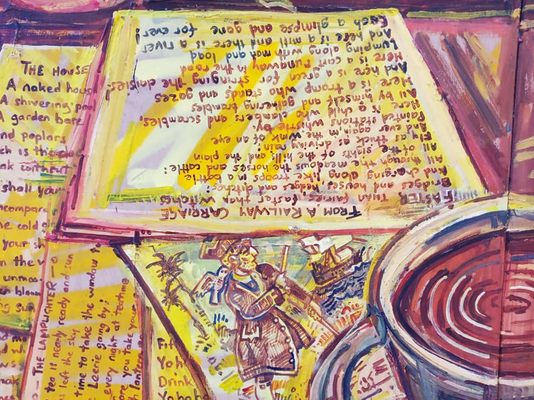 THE HOUSE
A naked hou
A shivering pool
A garden bare
and poplars
such is the
shall your
ncompare
he cold
your sh
in the w
FROM A RAILWAY CARRIAGE
FASTER THAN fairies, faster than witches
Bridges and houses, hedges and ditches;
And charging along like troops in a battle
All through the meadows the horses and cattle:
All of the sights of the hill and the plain
Fly as thick as driving rain;
And ever again, in the wink of an eye,
Painted stations whistle by.
Here is a child who clambers and scrambles,
All by himself and gathering brambles;
Here is a tramp who stands and gazes
And here is a green for stringing the daisies!
Here is a cart runaway in the road
Lumping along with man and load
And here is a mill and there is a river
Each a glimpse and gone for ever!
THE LAMPLIGHTER
tea is nearly ready and
left the sky
time to take the window to
Leerie going by;
every night at teatime
you take your
lantern
Fif
Yo-h
Drink
Yo-ho-h